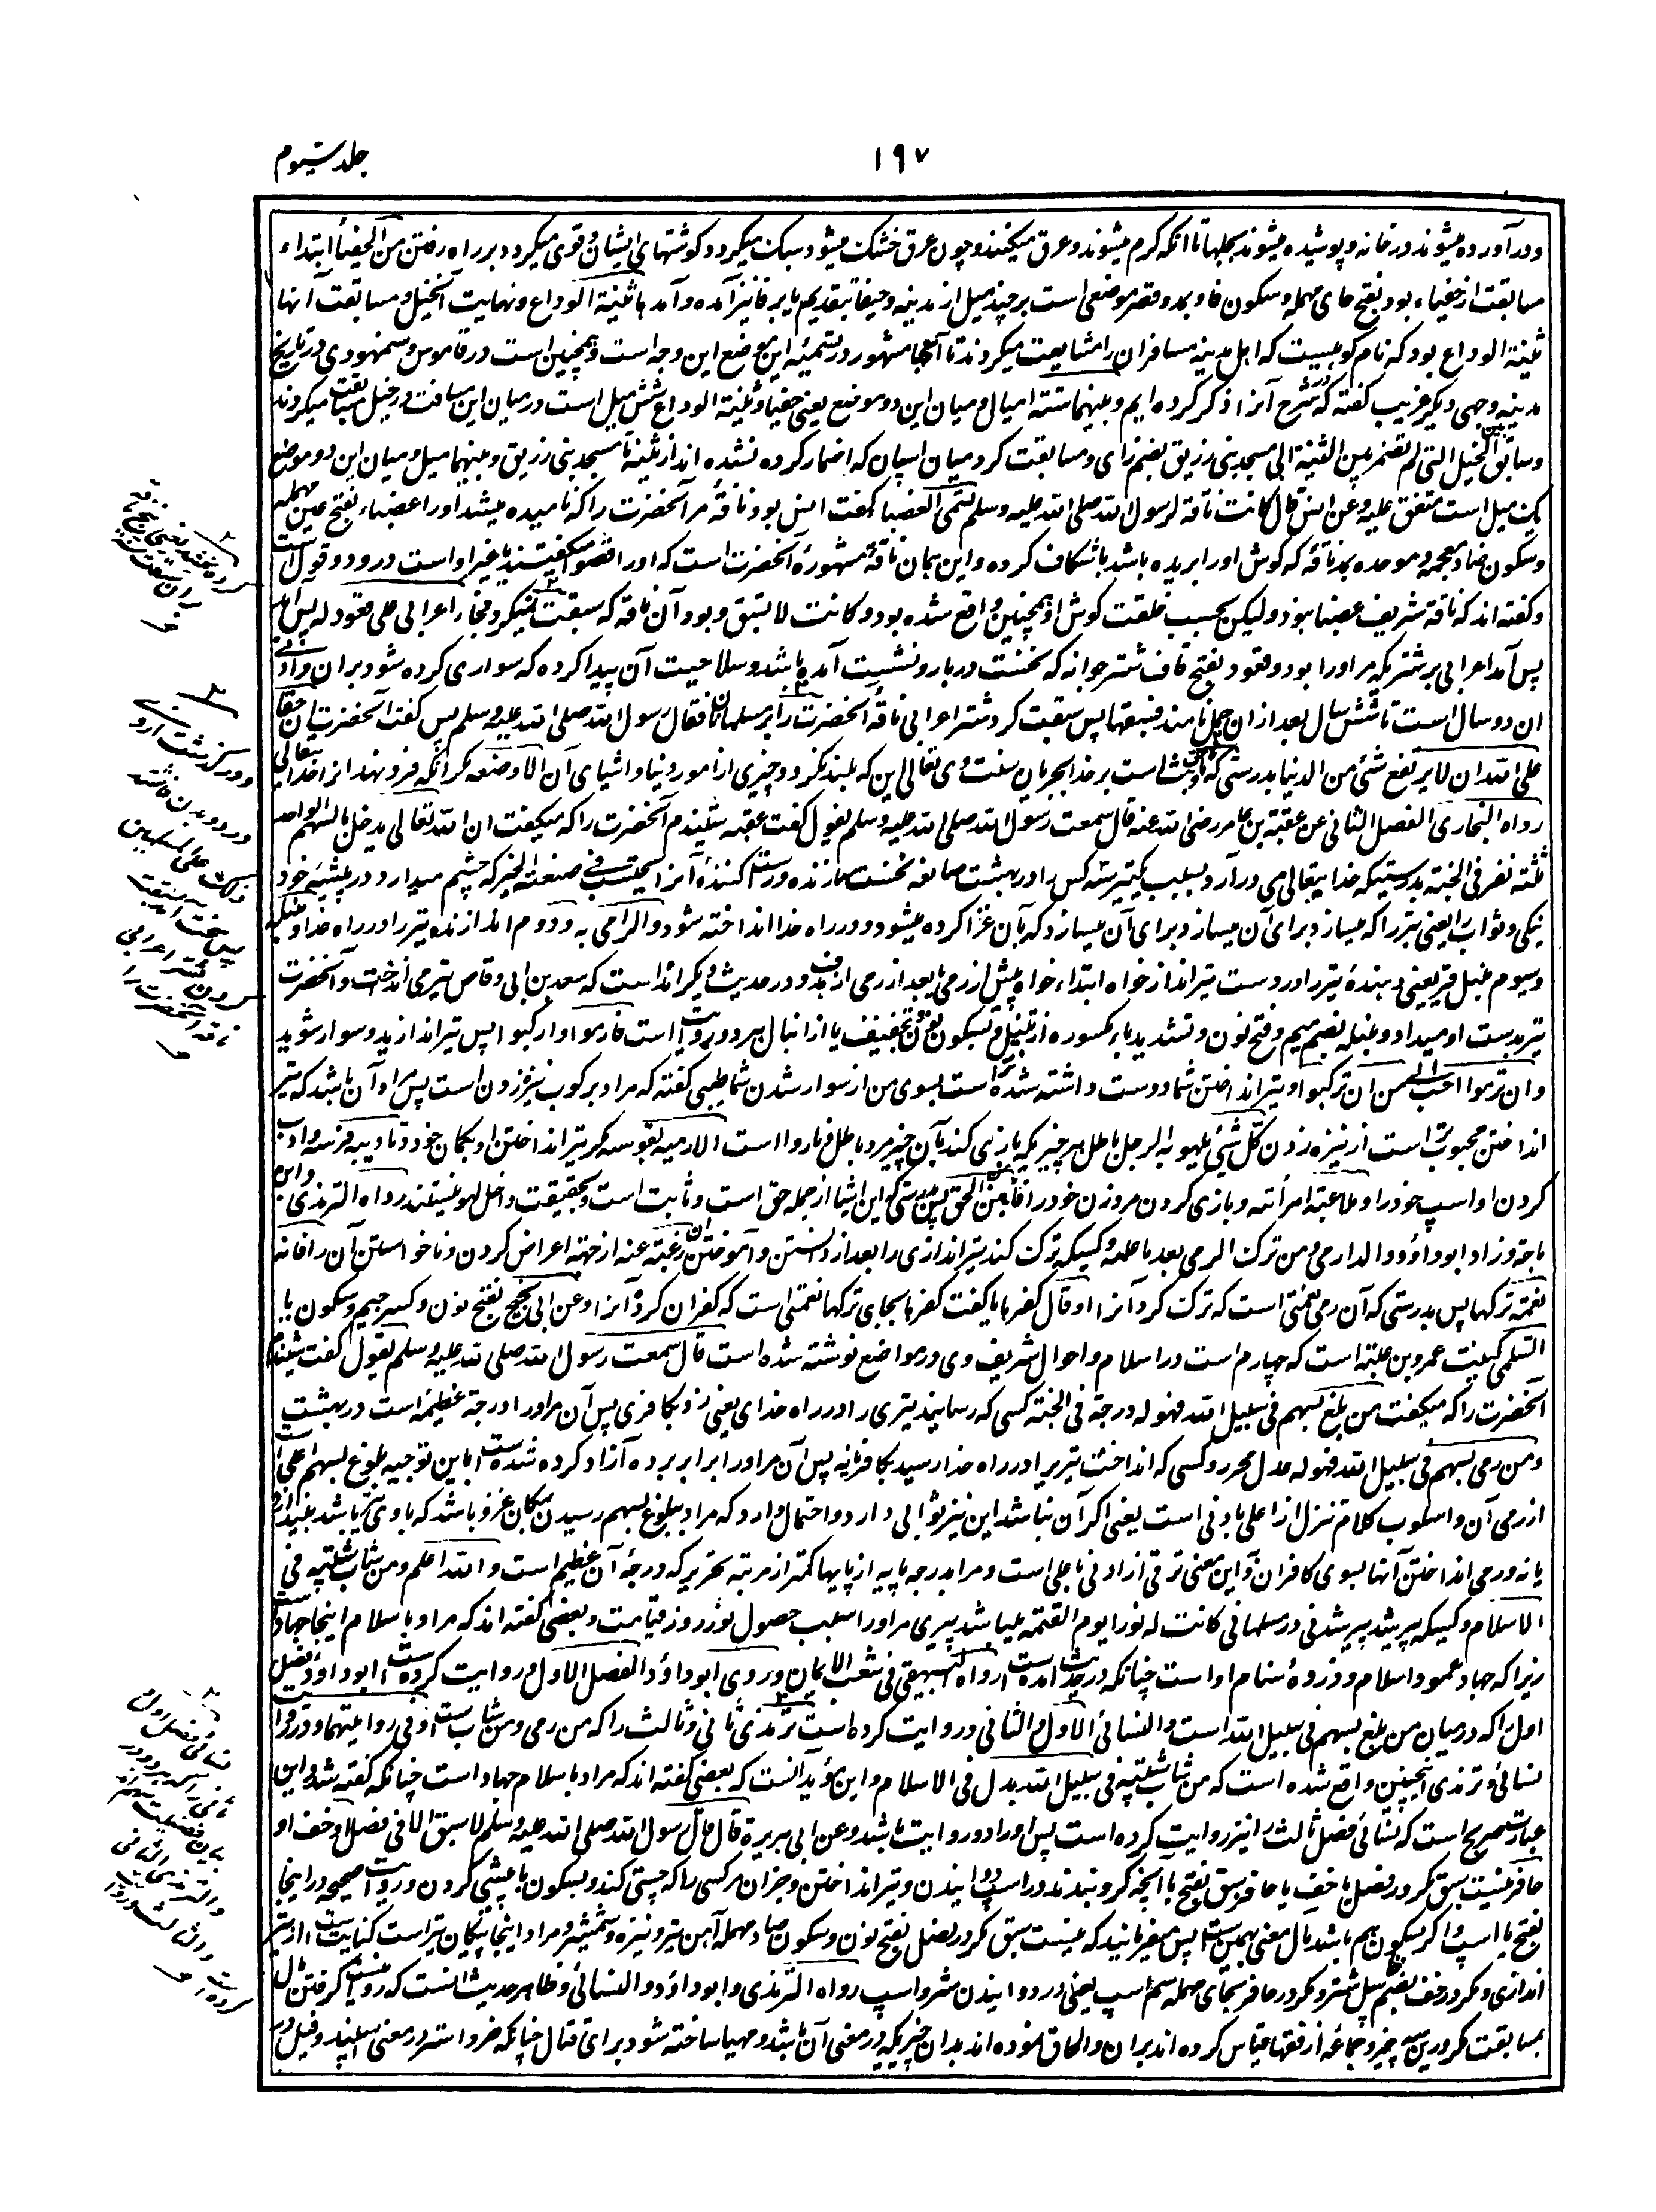 جلد سیوم
۱۹۷
و درآورده میشوند در خانه و پوشیده میشوند بجلها تا آنکه گرم میشوند و عرق میکنند و چون عرق خشک میشود سبک میگردد گوشتهای ایشان و قوی میگردد بر راه رفتن من الحفیأ ابتداء
مسابقت از حفیاء بود بفتح حای مهمله و سکون فا و بمد و قصر موضعی است بر چند میل از مدینه و حیفا بتقدیم یا بر فا نیز آمده و آمدها ثنیة الوداع و نهایت آنخیل و مسابقت آنها
ثنیة الوداع بود که نام کوهیست که اهل مدینه مسافران را مشایعت میکردند تا آنجا مشهور در تسمیه این موضع این وجه است و همچنین است در قاموس و سمنهودی در تاریخ
مدینه وجهی دیگر غریب گفته که در شرح آنرا ذکر کرده ایم و بینهما ستة امیال و میان این دو موضع یعنی حفیا و ثنیة الوداع شش میل است در میان این مسافت در خیل مسابقت میکردند
و سابق بین الخیل التی لم تضمر من الثنیة الی مسجد بنی زریق بضم زای و مسابقت کرد میان اسپان که اضمار کرده نشده اند از ثنیه تا مسجد بنی زریق و بینهما میل و میان این دو موضع
یک میل است متفق علیه و عن انس قال کانت ناقة لرسول الله صلی الله علیه وسلم تسمی العضبا گفت انس بود ناقهٔ مر آنحضرت را که نامیده میشد او را عضباء بفتح عین مهمله
و سکون ضاد معجمه و موحده بمد ناقه که گوش او را بریده باشد یا شگاف کرده و این همان ناقهٔ مشهورهٔ آنحضرت است که او را قصوا میگفتند یا غیر او است درو دو قول است
و گفته اند که ناقه شریف عضبا نبود ولیکن بحسب خلقت گوش او همچنین واقع شده بود و کانت لا تسبق و بود آن ناقه که سبقت نمیکرد فجاء اعرابی علی قعود له پس آمد
پس آمد اعرابی بر شتریکه مر او را بود و قعود بفتح قاف شتر جوانه که نخست در بار و نشست آمده باشد و صلاحیت آن پیدا کرده که سواری کرده شود بران و ادنی
آن دو سال است تا شش سال بعد ازان جمل نامند فسبقها پس سبقت کرد شتر اعرابی ناقهٔ آنحضرت را بر مسلمانان فقال رسول الله صلی الله علیه وسلم پس گفت آنحضرت ان حقا
علی الله ان لا یرتفع شئ من الدنیا بدرستی که ثابت است بر خدا بجریان سنت وی تعالی این که بلند نگردد چیزی از امور دنیا و اشیای آن الا وضعه مگر آنکه فرو نهد آنرا خدا یتعالی
رواه البخاری الفصل الثانی عن عقبة بن عامر رضی الله عنه قال سمعت رسول الله صلی الله علیه وسلم یقول گفت عقبه شنیدم آنحضرت را که میگفت ان الله تعالی یدخل بالسهم الواحد
ثلثة نفر فی الجنة بدرستیکه خدا یتعالی می در آرد بسبب یک تیر سه کس را در بهشت صانعه نخست سازنده و راست کنندهٔ آنرا یحتسب فی صنعته الخیر که چشم میدارد در پیشهٔ خود
نیکی و ثواب را یعنی تیر را که میسازد برای آن میسازد که بآن غزا کرده میشود و در راه خدا انداخته شود و الرامی به و دوم اندازنده تیر را در راه خدا و منبله
و سیوم منبل تیر یعنی دهندهٔ تیر را در دست تیر انداز خواه ابتداء خواه پیش از رمی یا بعد از رمی از هدف و در حدیث دیگر آمده است که سعد بن ابی وقاص تیر می انداخت و آنحضرت
تیر بدست او میداد و منبله بضم میم و فتح نون و تشدید باء مکسوره از تنبیل و بسکون نون و تخفیف با از انبال هر دو روایت است فارموا و ارکبوا پس تیر اندازید و سوار شوید
و ان ترموا احب الی من ان ترکبوا و تیر انداختن شما دوست داشته شده تر است بسوی من از سوار شدن شما طیبی گفته که مراد برکوب نیزه زدن است پس مراد آن باشد که تیر
انداختن محبوب تر است از نیزه زدن کل شئ یلهو به الرجل باطل هر چیزیکه بازی کند بآن چیز مرد باطل و ناروا است الا رمیه بقوسه مگر تیر انداختن او بکمان خود و تادیبه فرسه و ادب
کردن او اسپ خود را و ملاعبته امرأته و بازی کردن مر زن خود را فانهن من الحق پس بدرستی که این اشیا از جمله حق است و ثابت است و بحقیقت داخل لهو نیستند رواه الترمذی و ابن
ماجة و زاد ابوداؤد و الدارمی و من ترک الرمی بعد ما علمه و کسیکه ترک کند تیر اندازی را بعد از دانستن و آموختن آن رغبة عنه از جهة اعراض کردن و ناخواستن آن را فانه
نعمة ترکها پس بدرستی که آن رمی نعمتی است که ترک کرد آنرا او قال کفرها یا گفت کفرها بجای ترکها نعمتی است که کفران کرد آنرا و عن ابی نجیح بفتح نون و کسر جیم و سکون یا
السلمی کنیت عمرو بن عبسه است که چهارم است در اسلام و احوال شریف وی در مواضع نوشته شده است قال سمعت رسول الله صلی الله علیه وسلم یقول گفت شنیدم
آنحضرت را که میگفت من بلغ بسهم فی سبیل الله فهو له درجة فی الجنة کسی که رسانید تیری را در راه خدای یعنی زد بکافری پس آن مر او را درجة عظیمه است در بهشت
و من رمی بسهم فی سبیل الله فهو له عدل محرر و کسی که انداخت تیر را در راه خدا رسید بکافر یا نه پس آن مر او را برابر برده آزاد کرده شده است باین توجیه بلوغ بسهم اعلی است
از رمی آن و اسلوب کلام تنزل از اعلی بادنی است یعنی اگر آن نباشد این نیز ثوابی دارد و احتمال دارد که مراد ببلوغ بسهم رسیدن بمکان غزو باشد که با وی تیر باشد بیندازد
یا نه و رمی انداختن آنها بسوی کافران و این معنی ترقی از ادنی باعلی است و مراد بدرجه پایه از پایها کمتر از مرتبه تحریر که درجهٔ آن عظیم است و الله اعلم و من شاب شیبة فی
الاسلام و کسیکه پیر شد پیر شدنی در مسلمانی کانت له نورا یوم القیمة میباشد پیری مر او را سبب حصول نور روز قیامت و بعضی گفته اند که مراد باسلام اینجا جهاد است
زیرا که جهاد عمود اسلام و ذروهٔ سنام او است چنانکه در حدیث آمده است رواه البیهقی فی شعب الایمان و روی ابوداؤد الفصل الاول و روایت کرده است ابوداؤد فصل
اول را که در میان من بلغ بسهم فی سبیل الله است و النسائی الاول و الثانی و روایت کرده است ترمذی ثانی و ثالث را که من رمی و من شاب است و فی روایتهما و در روایت
نسائی و ترمذی اینچنین واقع شده است که من شاب شیبة فی سبیل الله بدل فی الاسلام و این مؤید آنست که بعضی گفته اند که مراد باسلام جهاد است چنانکه گفته شد و این
عبارت صریح است که نسائی فصل ثالث را نیز روایت کرده است پس او را دو روایت باشد و عن ابی هریرة قال قال رسول الله صلی الله علیه وسلم لا سبق الا فی نصل او خف او
حافر نیست سبق مگر در نصل یا خف یا حافر سبق بفتح با آنچه گرو بندند در اسپ دوانیدن و تیر انداختن و جز آن مر کسی را که چستی کند و بسکون با پیشی کردن و روایت صحیحه در اینجا
بفتح با است و اگر سکون هم باشد مآل معنی همین است پس میفرمایند که نیست سبق مگر در نصل بفتح نون و سکون صاد مهمله آهن تیر و نیزه و شمشیر و مراد اینجا پیکان تیر است کنایت است از تیر
اندازی و مگر در خف بضم پل شتر و مگر در حافر بحای مهمله سم اسپ یعنی در دوانیدن شتر و اسپ رواه الترمذی و ابوداؤد و النسائی و ظاهر حدیث آنست که روا نیست گرفتن مال
بمسابقت مگر درین سه چیز و جماعه از فقها قیاس کرده اند بران و الحاق نموده اند بدان چیزیکه در معنی آن باشد و مهیا ساخته شود برای قتال چنانکه خر و استر در معنی اسپند و فیل در